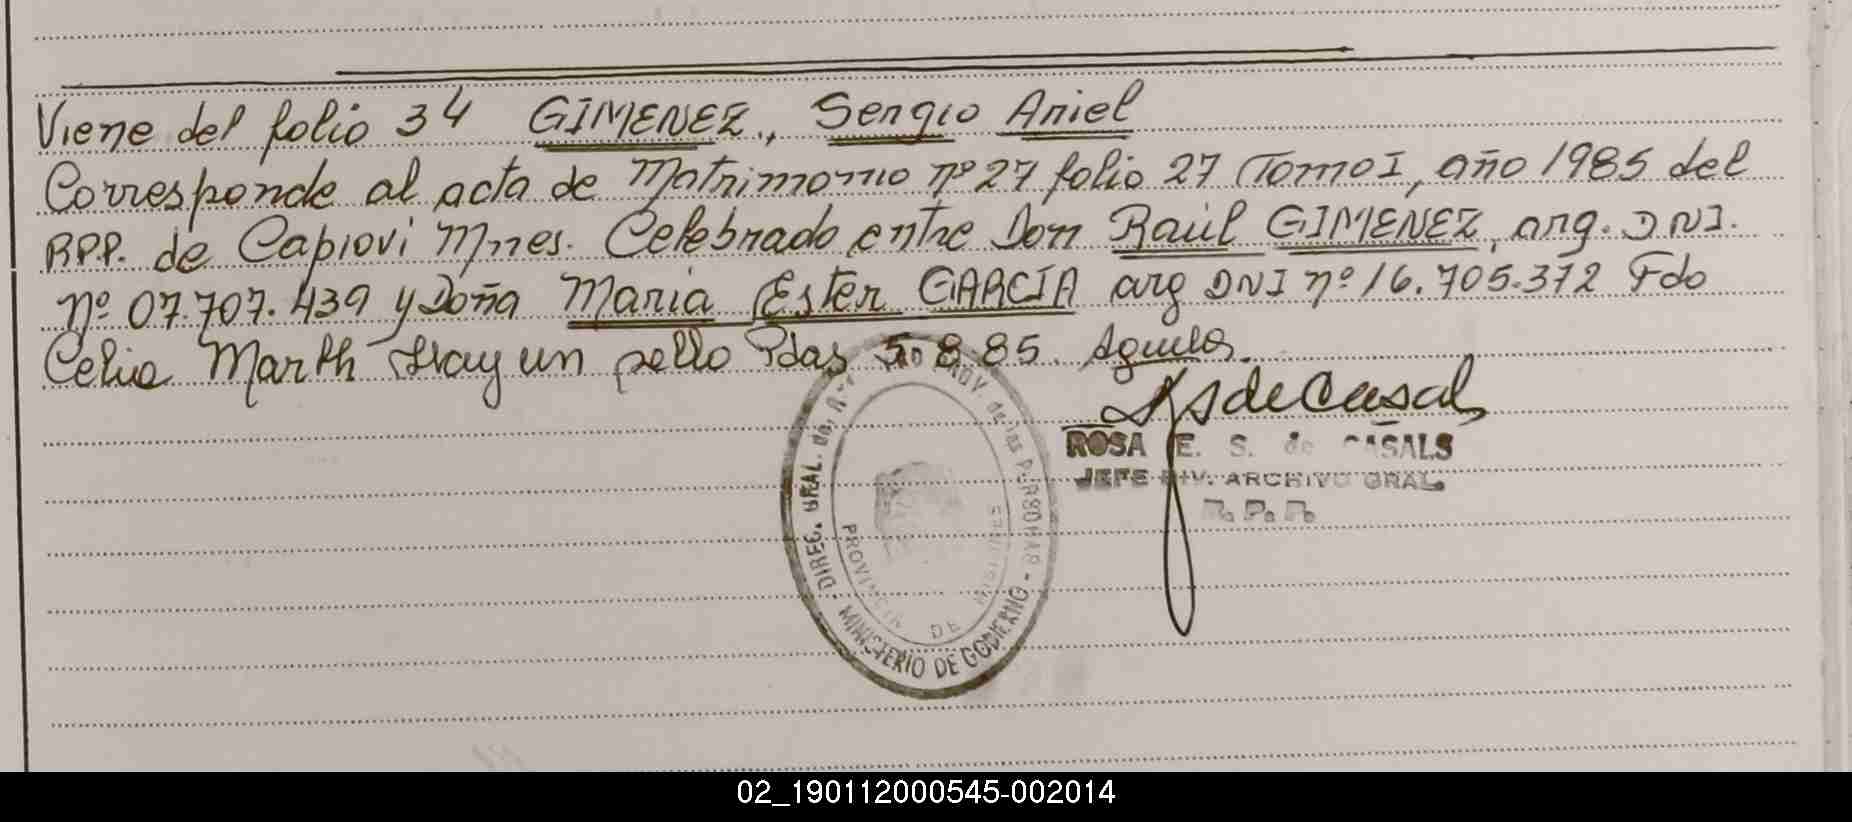 Viene del folio 34 GIMENEZ, Sergio Ariel
Corresponde al acta de Matrimonio nº 27 folio 27 Tomo I, año 1985 del
RPP. de Capiovi Mnes. Celebrado entre Don Raúl GIMENEZ, arg. DNI.
nº 07.707.439 y Doña Maria Ester GARCIA arg DNI nº 16.705.372 Fdo
Celia Marth Hay un sello Pdas 5.8.85.
ROSA E. S. de CASALS
JEFE DIV. ARCHIVO GRAL.
R. P. P.
DIREC. GRAL. del PROV. de las PERSONAS
MINISTERIO DE GOBIERNO
PROVINCIA DE MISIONES
02_190112000545-002014